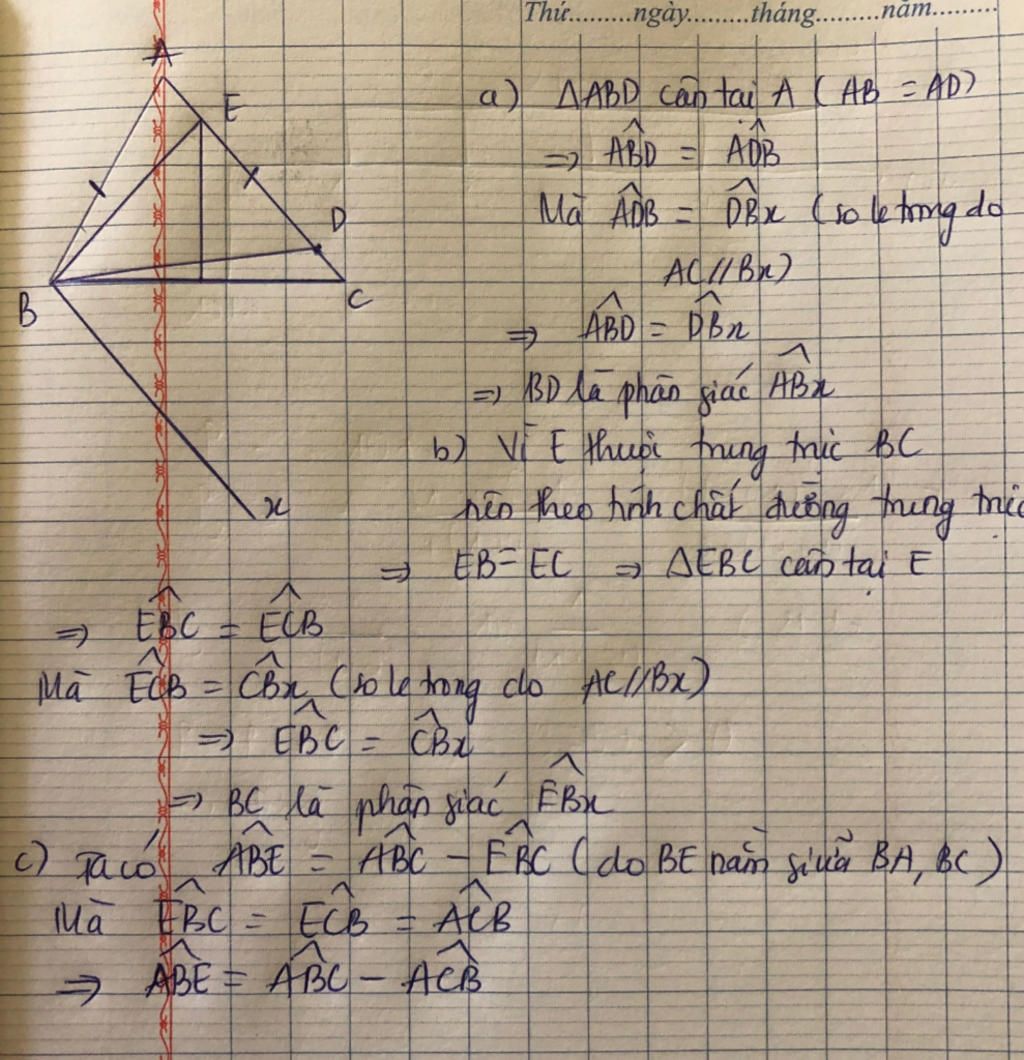 Thứ.........ngày.........tháng.........năm.........
A
E
D
B
C
x
a) ΔABD cân tại A (AB = AD)
=> \widehat{ABD} = \widehat{ADB}
Mà \widehat{ADB} = \widehat{DBx} (so le trong do
AC//Bx)
=> \widehat{ABD} = \widehat{DBx}
=> BD là phân giác \widehat{ABx}
b) Vì E thuộc trung trực BC
nên theo tính chất đường trung trực
=> EB = EC => ΔEBC cân tại E
=> \widehat{EBC} = \widehat{ECB}
Mà \widehat{ECB} = \widehat{CBx} (so le trong do AC//Bx)
=> \widehat{EBC} = \widehat{CBx}
=> BC là phân giác \widehat{EBx}
c) Ta có \widehat{ABE} = \widehat{ABC} - \widehat{EBC} (do BE nằm giữa BA, BC)
Mà \widehat{EBC} = \widehat{ECB} = \widehat{ACB}
=> \widehat{ABE} = \widehat{ABC} - \widehat{ACB}